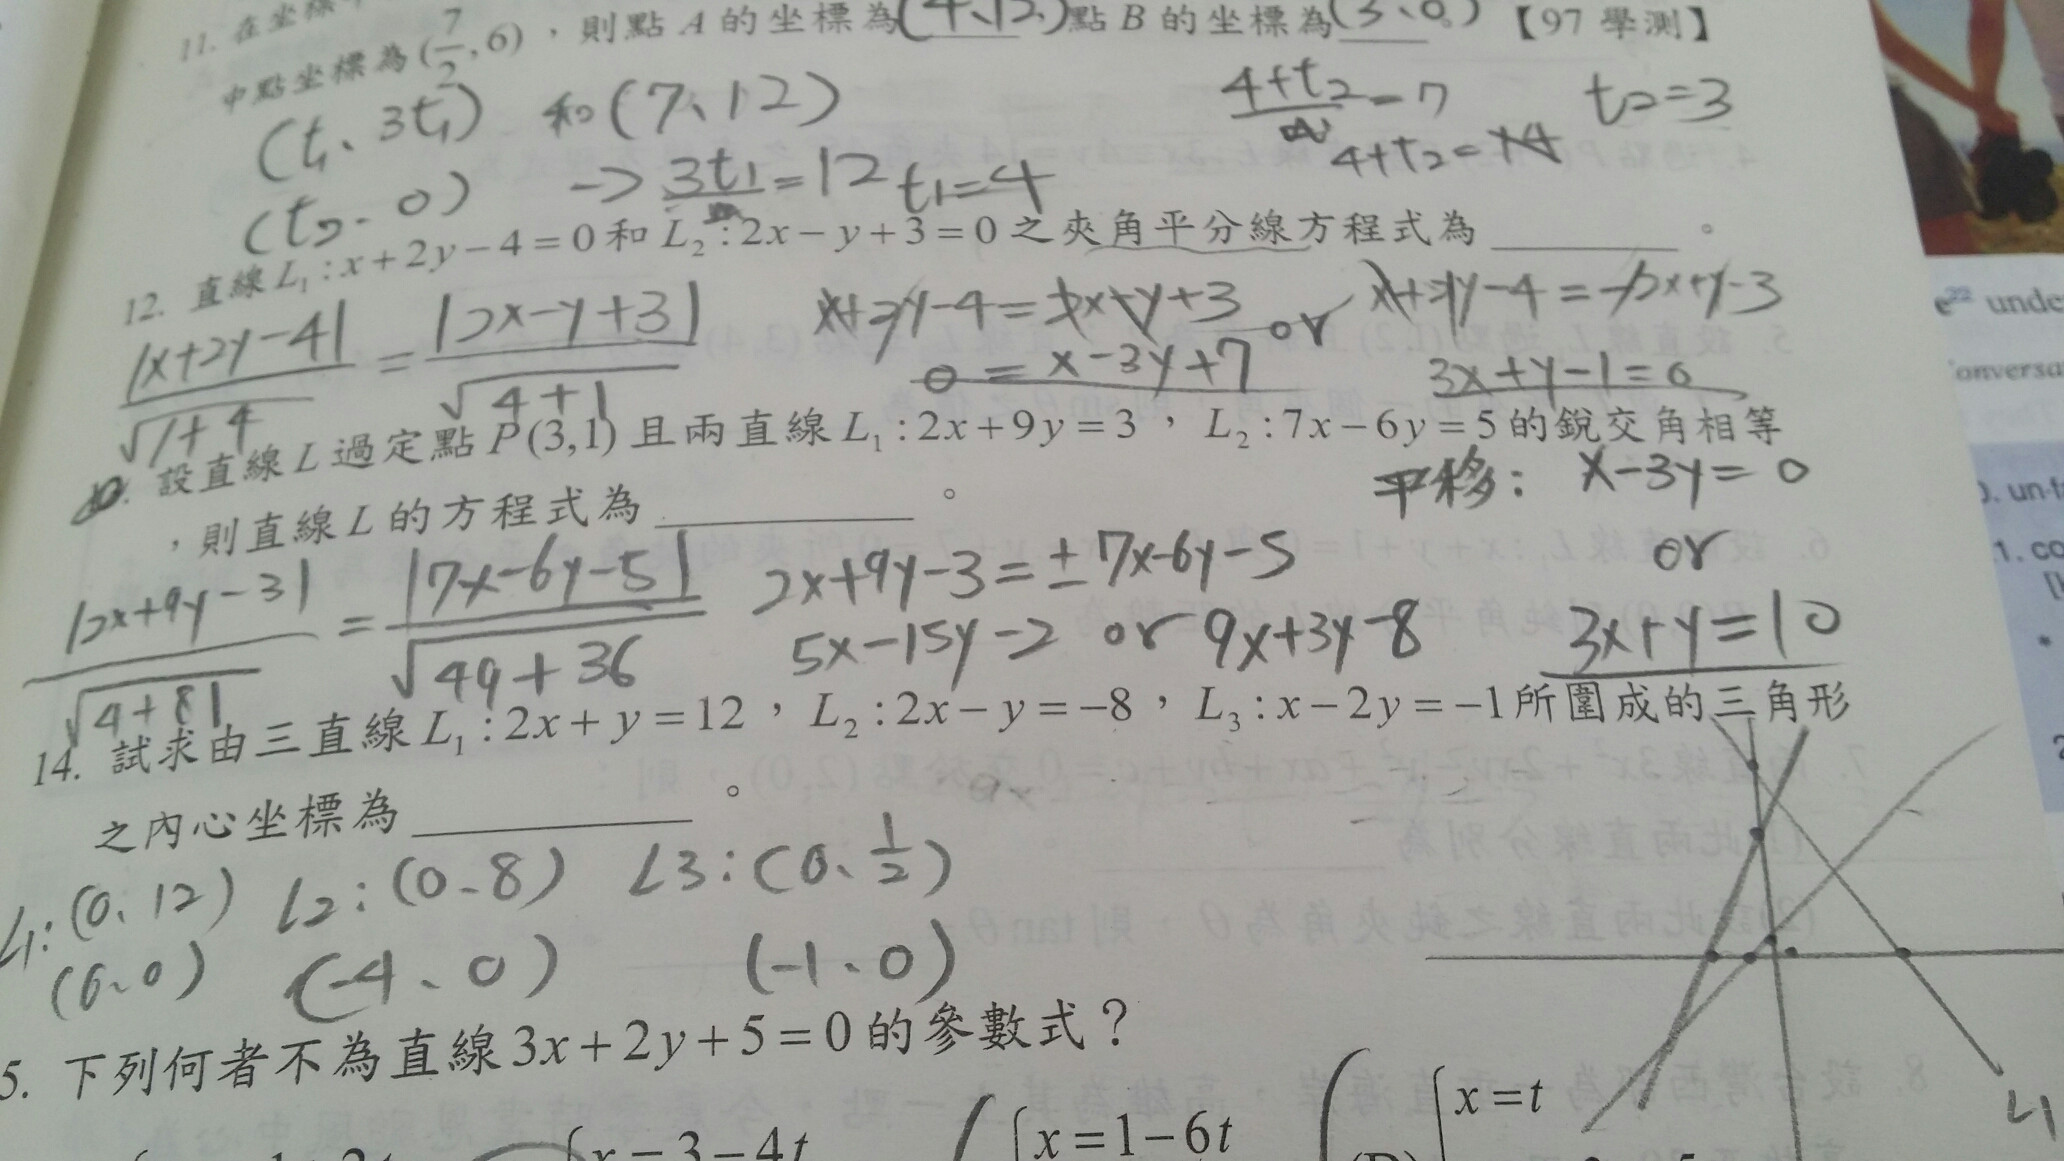 11. 在坐標
中點坐標為(7/2, 6)，則點 A 的坐標為(4、12)點 B 的坐標為(3、0)【97 學測】
(t1、3t1) 和(7、12)
(t2、0) -> 3t1/2=12 t1=4
4+t2/2=7 t2=3
4+t2=14
12. 直線L₁:x+2y−4=0和L₂:2x−y+3=0之夾角平分線方程式為 ________ 。
|x+2y-4|/√1+4 = |2x-y+3|/√4+1
x+2y-4=2x-y+3 or x+2y-4=-2x+y-3
0=x-3y+7 3x+y-1=0
設直線L過定點P(3,1)且兩直線L₁:2x+9y=3，L₂:7x−6y=5的銳交角相等
，則直線L的方程式為 ________ 。
平移: x-3y=0
or
3x+y=10
|2x+9y-3|/√4+81 = |7x-6y-5|/√49+36
2x+9y-3=±7x-6y-5
5x-15y-2 or 9x+3y-8
14. 試求由三直線L₁:2x+y=12，L₂:2x−y=−8，L₃:x−2y=−1所圍成的三角形
之內心坐標為 ________ 。
L1:(0、12) L2:(0、8) L3:(0、1/2)
(6、0) (-4、0) (-1、0)
L1
5. 下列何者不為直線3x+2y+5=0的參數式？
x=3−4t
x=1−6t
x=t
e²² unde
onversa
un-f
1. co